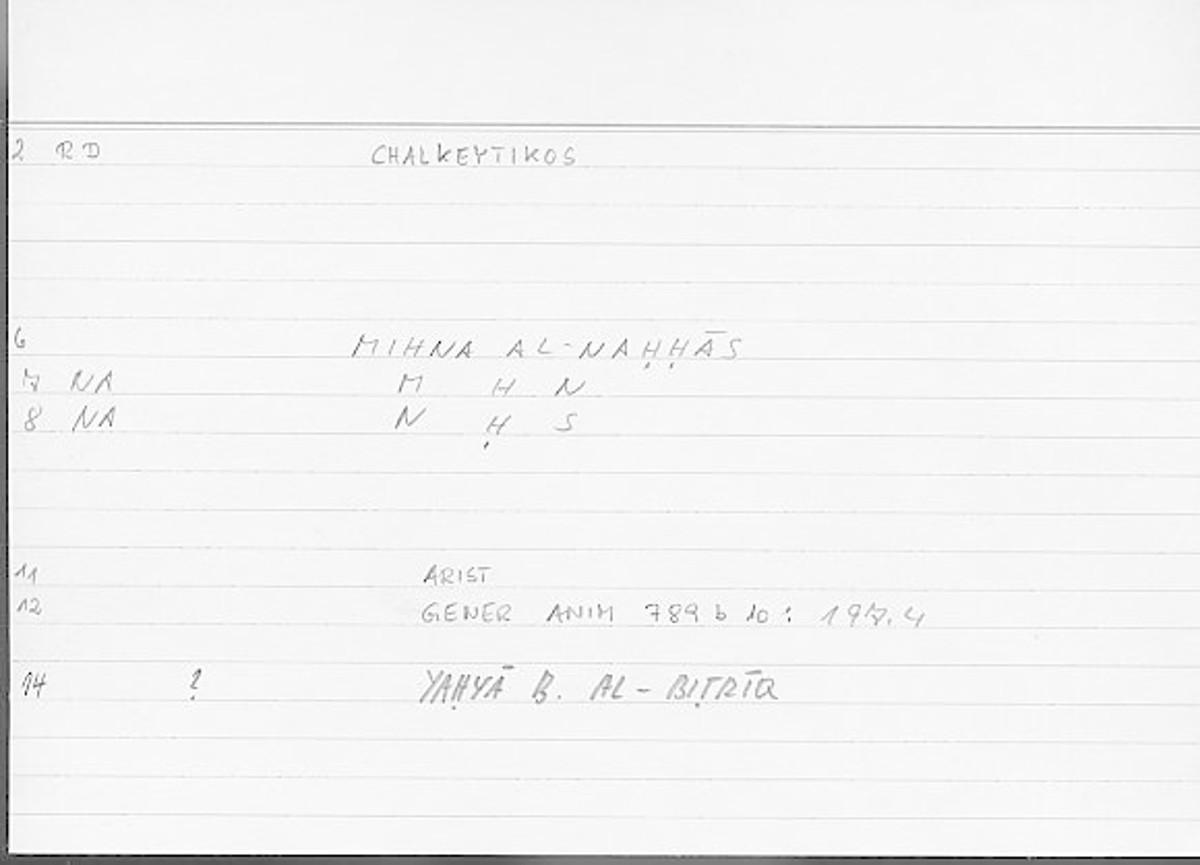 2 RD CHALKEYTIKOS
6 MIHNA AL-NAḤḤĀS
7 NA M H N
8 NA N Ḥ S
11 ARIST
12 GENER ANIM 789 b 10 : 197.4
14 ? YAḤYĀ B. AL-BIṬRĪQ